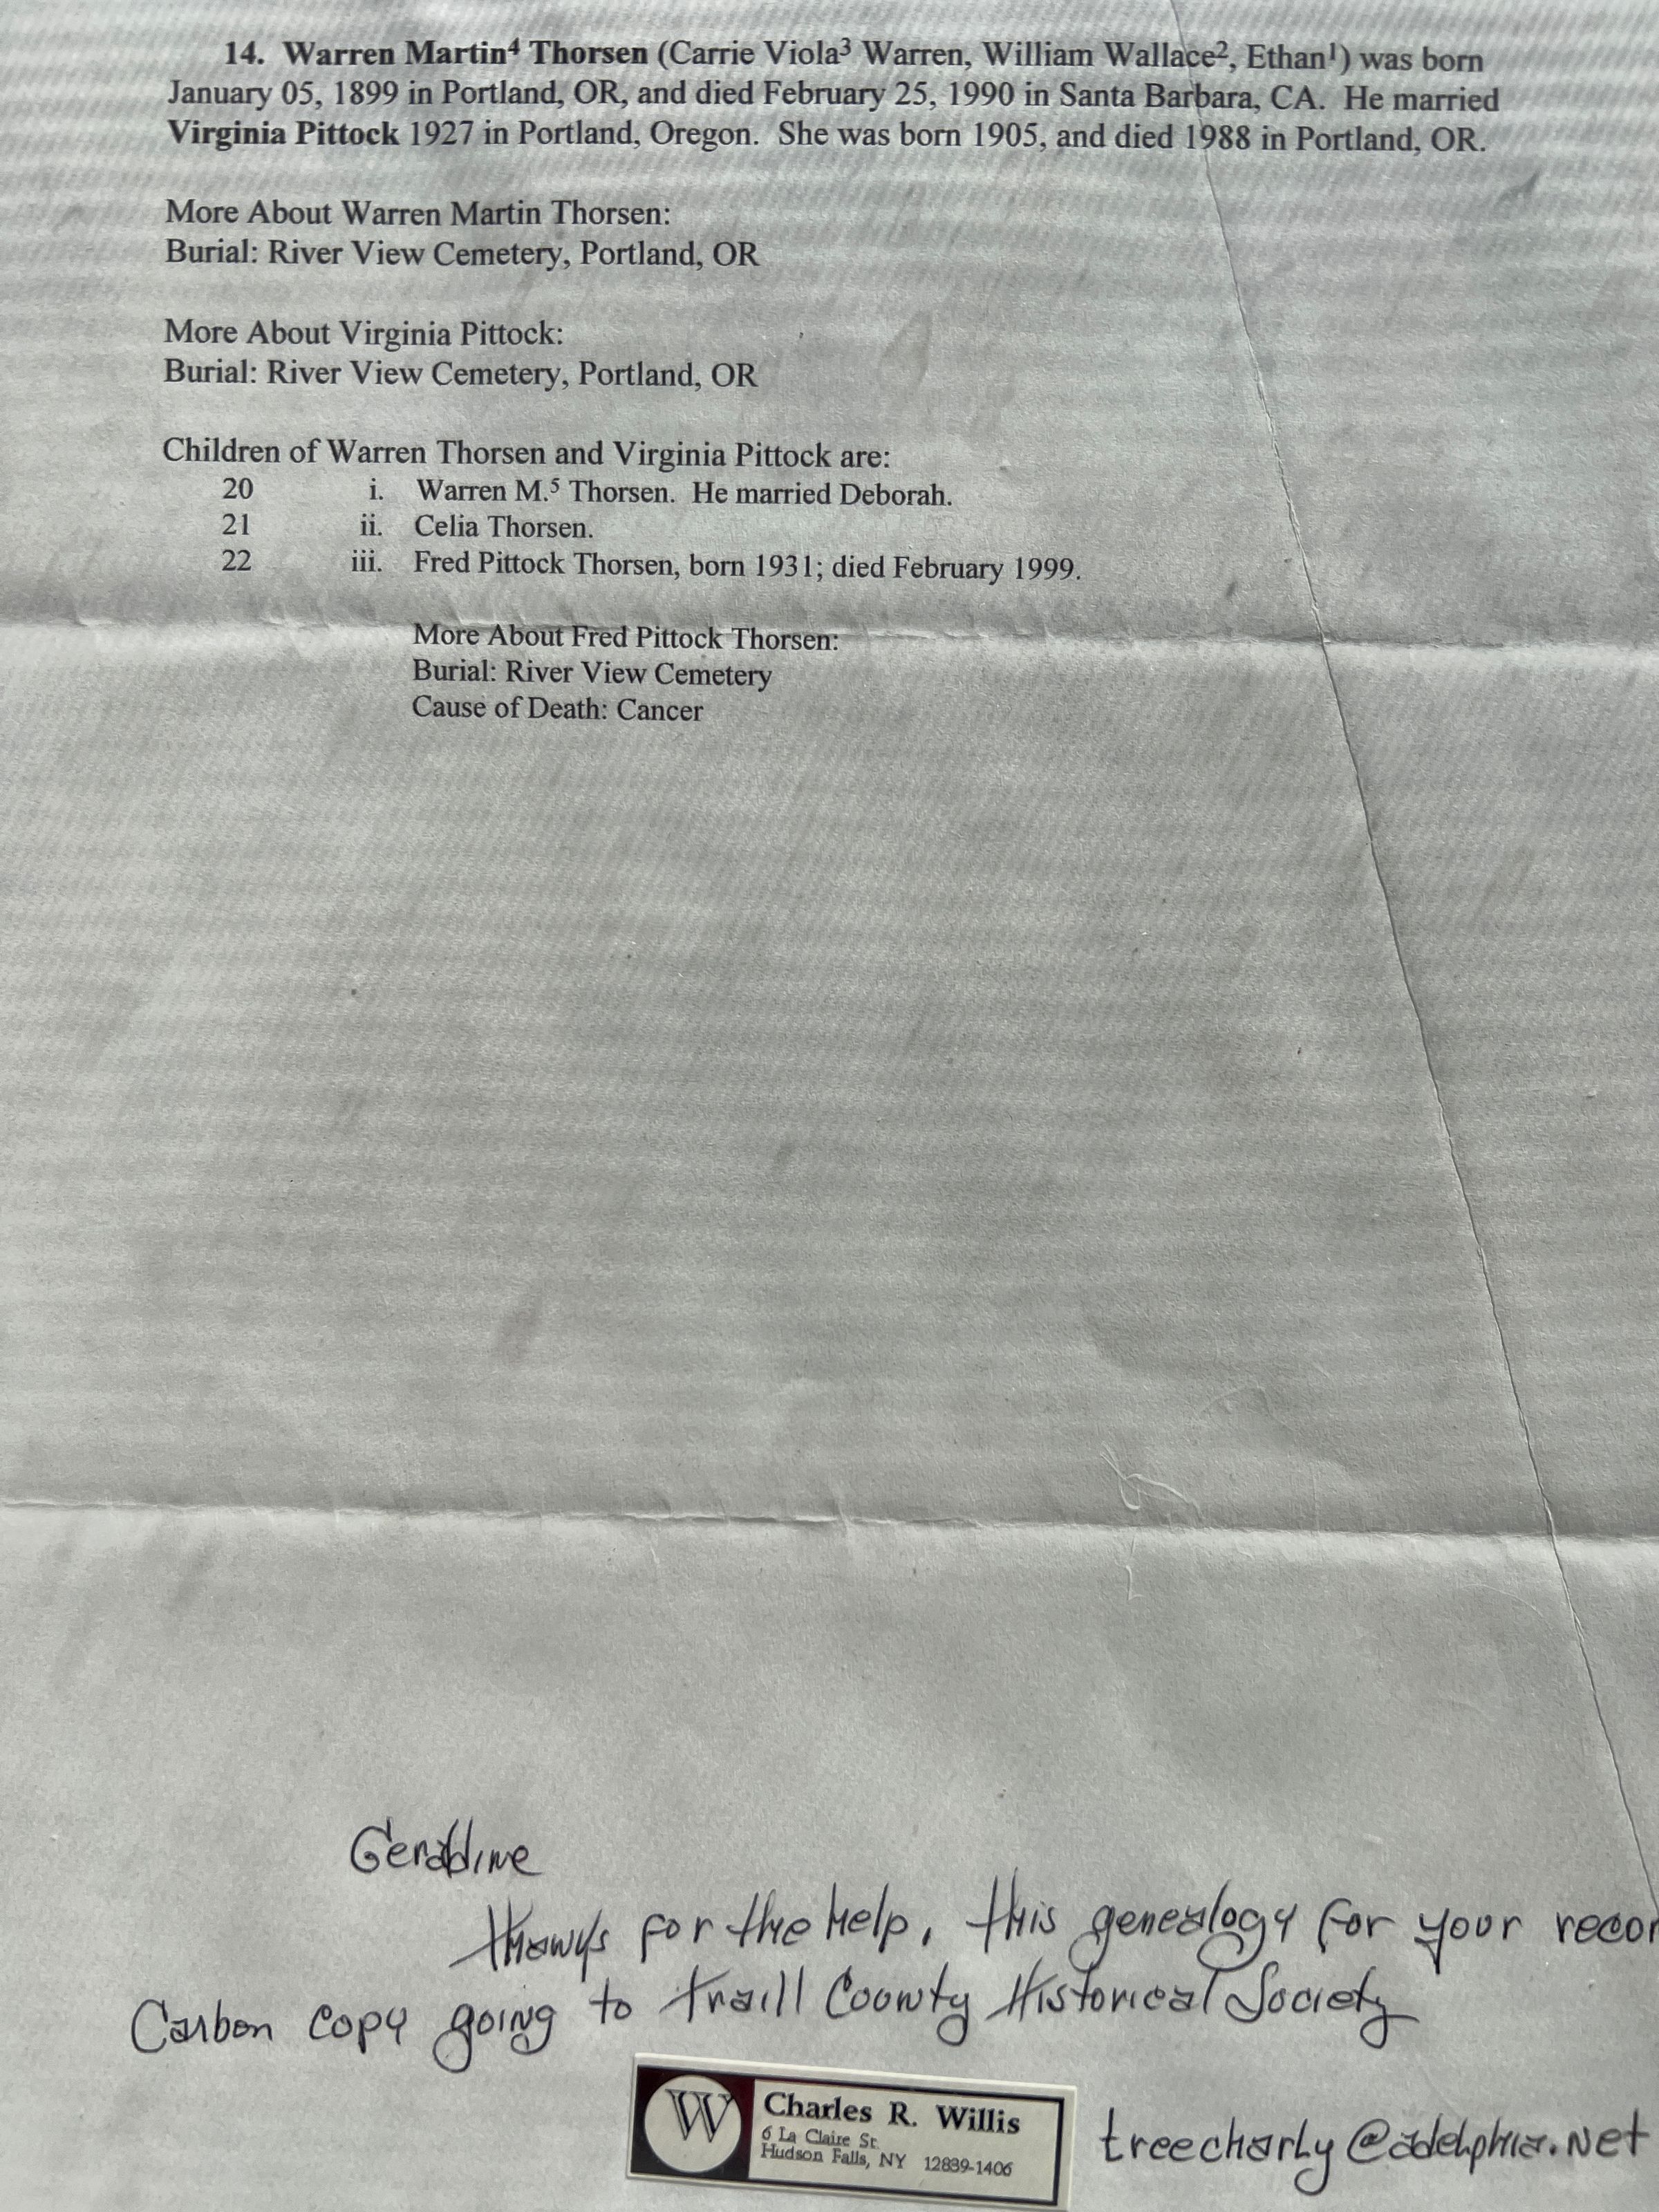 14. Warren Martin⁴ Thorsen (Carrie Viola³ Warren, William Wallace², Ethan¹) was born
January 05, 1899 in Portland, OR, and died February 25, 1990 in Santa Barbara, CA. He married
Virginia Pittock 1927 in Portland, Oregon. She was born 1905, and died 1988 in Portland, OR.
More About Warren Martin Thorsen:
Burial: River View Cemetery, Portland, OR
More About Virginia Pittock:
Burial: River View Cemetery, Portland, OR
Children of Warren Thorsen and Virginia Pittock are:
20 i. Warren M.⁵ Thorsen. He married Deborah.
21 ii. Celia Thorsen.
22 iii. Fred Pittock Thorsen, born 1931; died February 1999.
More About Fred Pittock Thorsen:
Burial: River View Cemetery
Cause of Death: Cancer
Geraldine
thanks for the help, this genealogy for your recor
Carbon copy going to Traill County Historical Society
W
Charles R. Willis
6 La Claire St.
Hudson Falls, NY 12839-1406
treecharly@adelphia.net